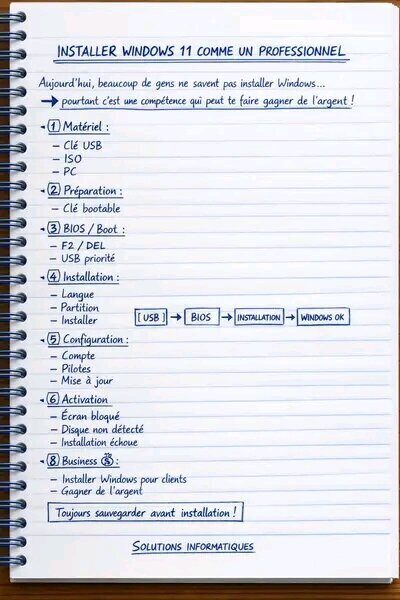 INSTALLER WINDOWS 11 COMME UN PROFESSIONNEL
Aujourd'hui, beaucoup de gens ne savent pas installer Windows...
→ pourtant c'est une compétence qui peut te faire gagner de l'argent !
1 Matériel :
– Clé USB
– ISO
– PC
2 Préparation :
– Clé bootable
3 BIOS / Boot :
– F2 / DEL
– USB priorité
4 Installation :
– Langue
– Partition
– Installer
[ USB ] → BIOS → INSTALLATION → WINDOWS OK
5 Configuration :
– Compte
– Pilotes
– Mise à jour
6 Activation
– Écran bloqué
– Disque non détecté
– Installation échoue
8 Business $ :
– Installer Windows pour clients
– Gagner de l'argent
Toujours sauvegarder avant installation !
SOLUTIONS INFORMATIQUES